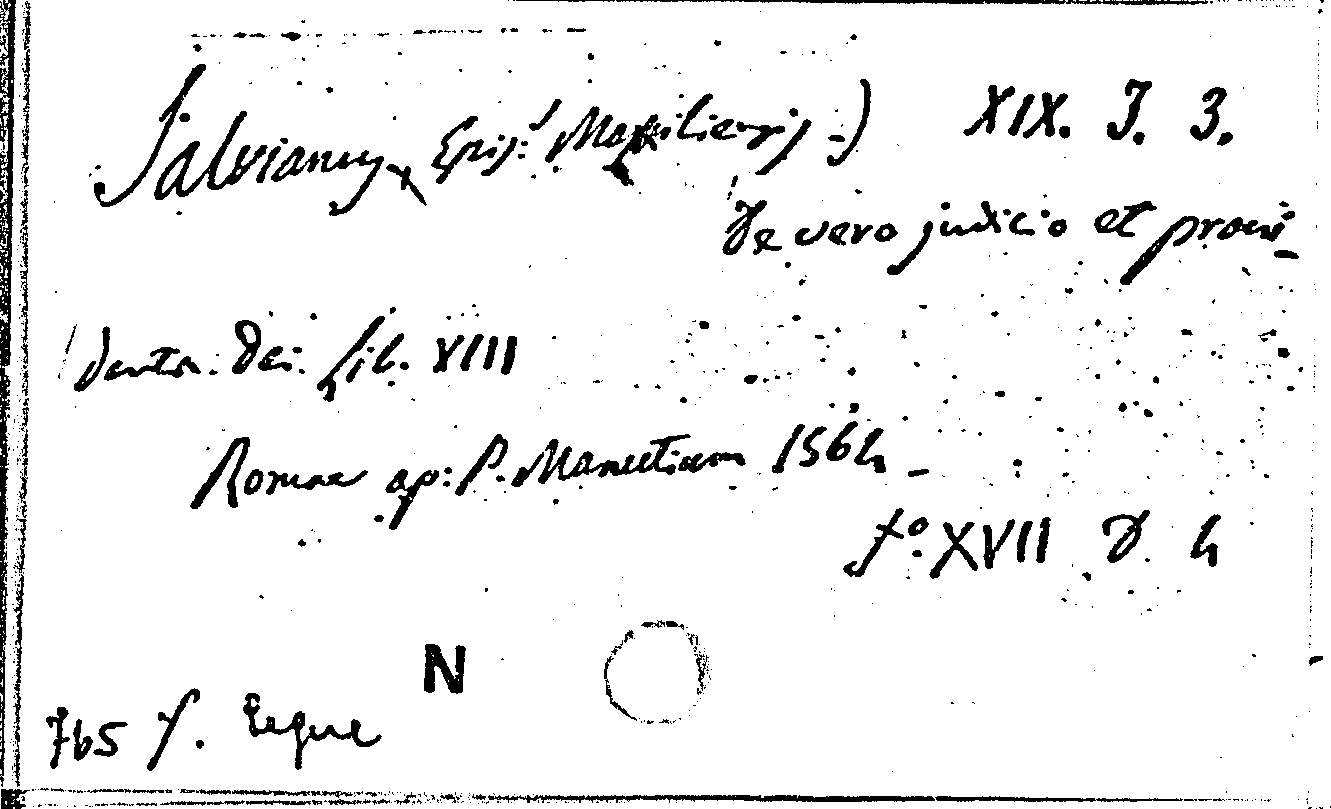 Salvianus Epis: Massiliensis -) XIX. J. 3.
De vero judicio et provi-
dentia Dei Lib. VIII
Romae ap: P. Manutium 1564 -
fo: XVII D. 4
N
765 f. segue